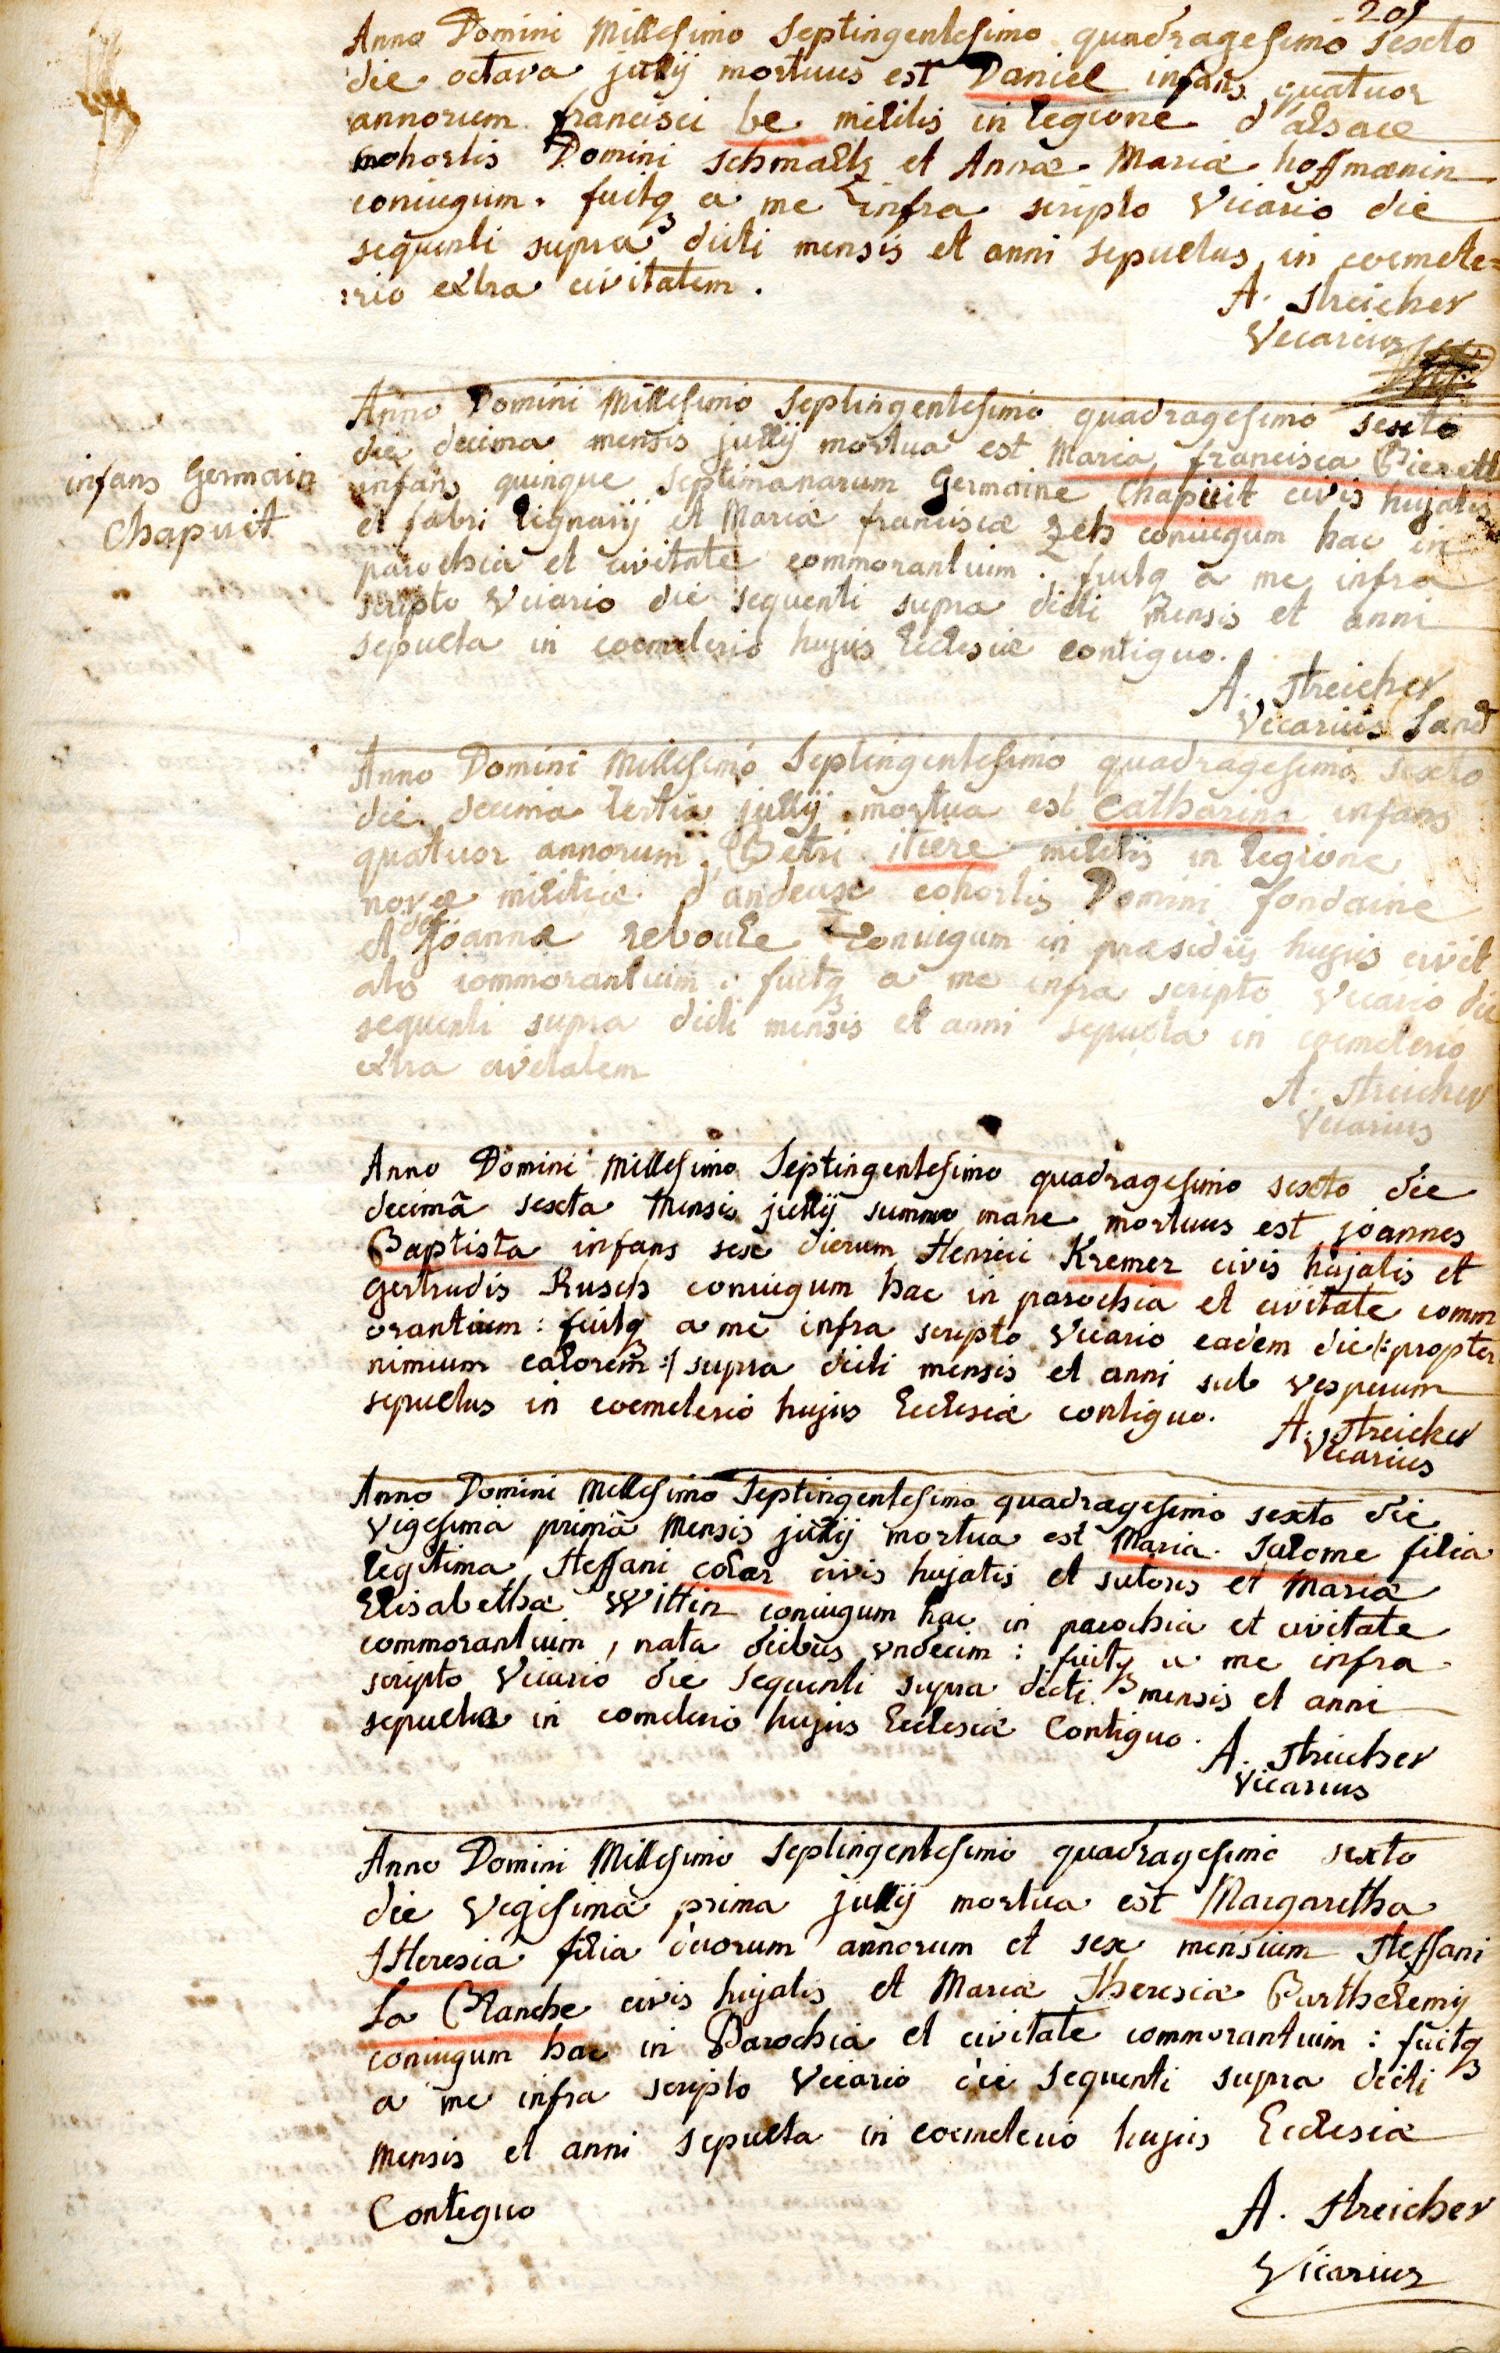 201
Anno Domini Millesimo Septingentesimo quadragesimo sexto
die octava jullÿ mortuus est Daniel infans quatuor
annorum francisci be militis in legione d'alsace
cohortis Domini schmaltz et Annæ Mariæ hoffmænin
coniugum. fuitq a me infra scripto Vicario die
sequenti supra dicti mensis et anni sepultus in coemete=
:rio extra civitatem.
A. Streicher
Vicarius
Anno Domini Millesimo Septingentesimo quadragesimo sexto
die decima mensis jullÿ mortua est Maria francisca Pierett
infans Germain
Chapuit
infans quinque septimanarum Germaine Chapuit civis hujatis
et fabri lignarÿ et Mariæ franciscæ zeh coniugum hac in
parochia et civitate commorantium: fuitq a me infra
scripto Vicario die sequenti supra dicti mensis et anni
sepulta in coemeterio hujus Ecclesiæ contiguo.
A. Streicher
Vicarius
Anno Domini Millesimo Septingentesimo quadragesimo sexto
die decima tertia jullÿ mortua est Catharina infans
quatuor annorum Petri itiere militis in legione
novæ militiæ d'andeuse cohortis Domini fondaine
et Joannæ reboule coniugum in præsidÿs hujus civit
atis commorantium: fuitq a me infra scripto Vicario die
sequenti supra dicti mensis et anni sepulta in coemeterio
extra civitatem
A. Streicher
Vicarius
Anno Domini Millesimo Septingentesimo quadragesimo sexto die
decimâ sexta mensis jullÿ summo mane mortuus est joannes
Baptista infans sex dierum Henrici Kremer civis hujatis et
Gertrudis Rusch coniugum hac in parochia et civitate comm
orantium: fuitq a me infra scripto Vicario eadem die (: propter
nimium calorem :) supra dicti mensis et anni sub vesperum
sepultus in coemeterio hujus Ecclesiæ contiguo.
A. Streicher
Vicarius
Anno Domini Millesimo Septingentesimo quadragesimo sexto die
Vigesima prima Mensis jullÿ mortua est Maria Salome filia
legitima Steffani colar civis hujatis et sutoris et Mariæ
Elisabethæ Wittin coniugum hac in parochia et civitate
commorantium, nata diebus undecim: fuitq a me infra
scripto Vicario die sequenti supra dicti mensis et anni
sepulta in cometerio hujus Ecclesiæ Contiguo.
A. Streicher
Vicarius
Anno Domini Millesimo Septingentesimo quadragesimo sexto
die Vigesimâ prima jullÿ mortua est Margaretha
Theresia filia duorum annorum et sex mensium Steffani
La Blanche civis hujatis et Mariæ Theresiæ Barthelemÿ
coniugum hac in Parochia et civitate commorantium: fuitq
a me infra scripto Vicario die sequenti supra dicti
mensis et anni sepulta in coemeterio hujus Ecclesiæ
Contiguo
A. Streicher
Vicarius